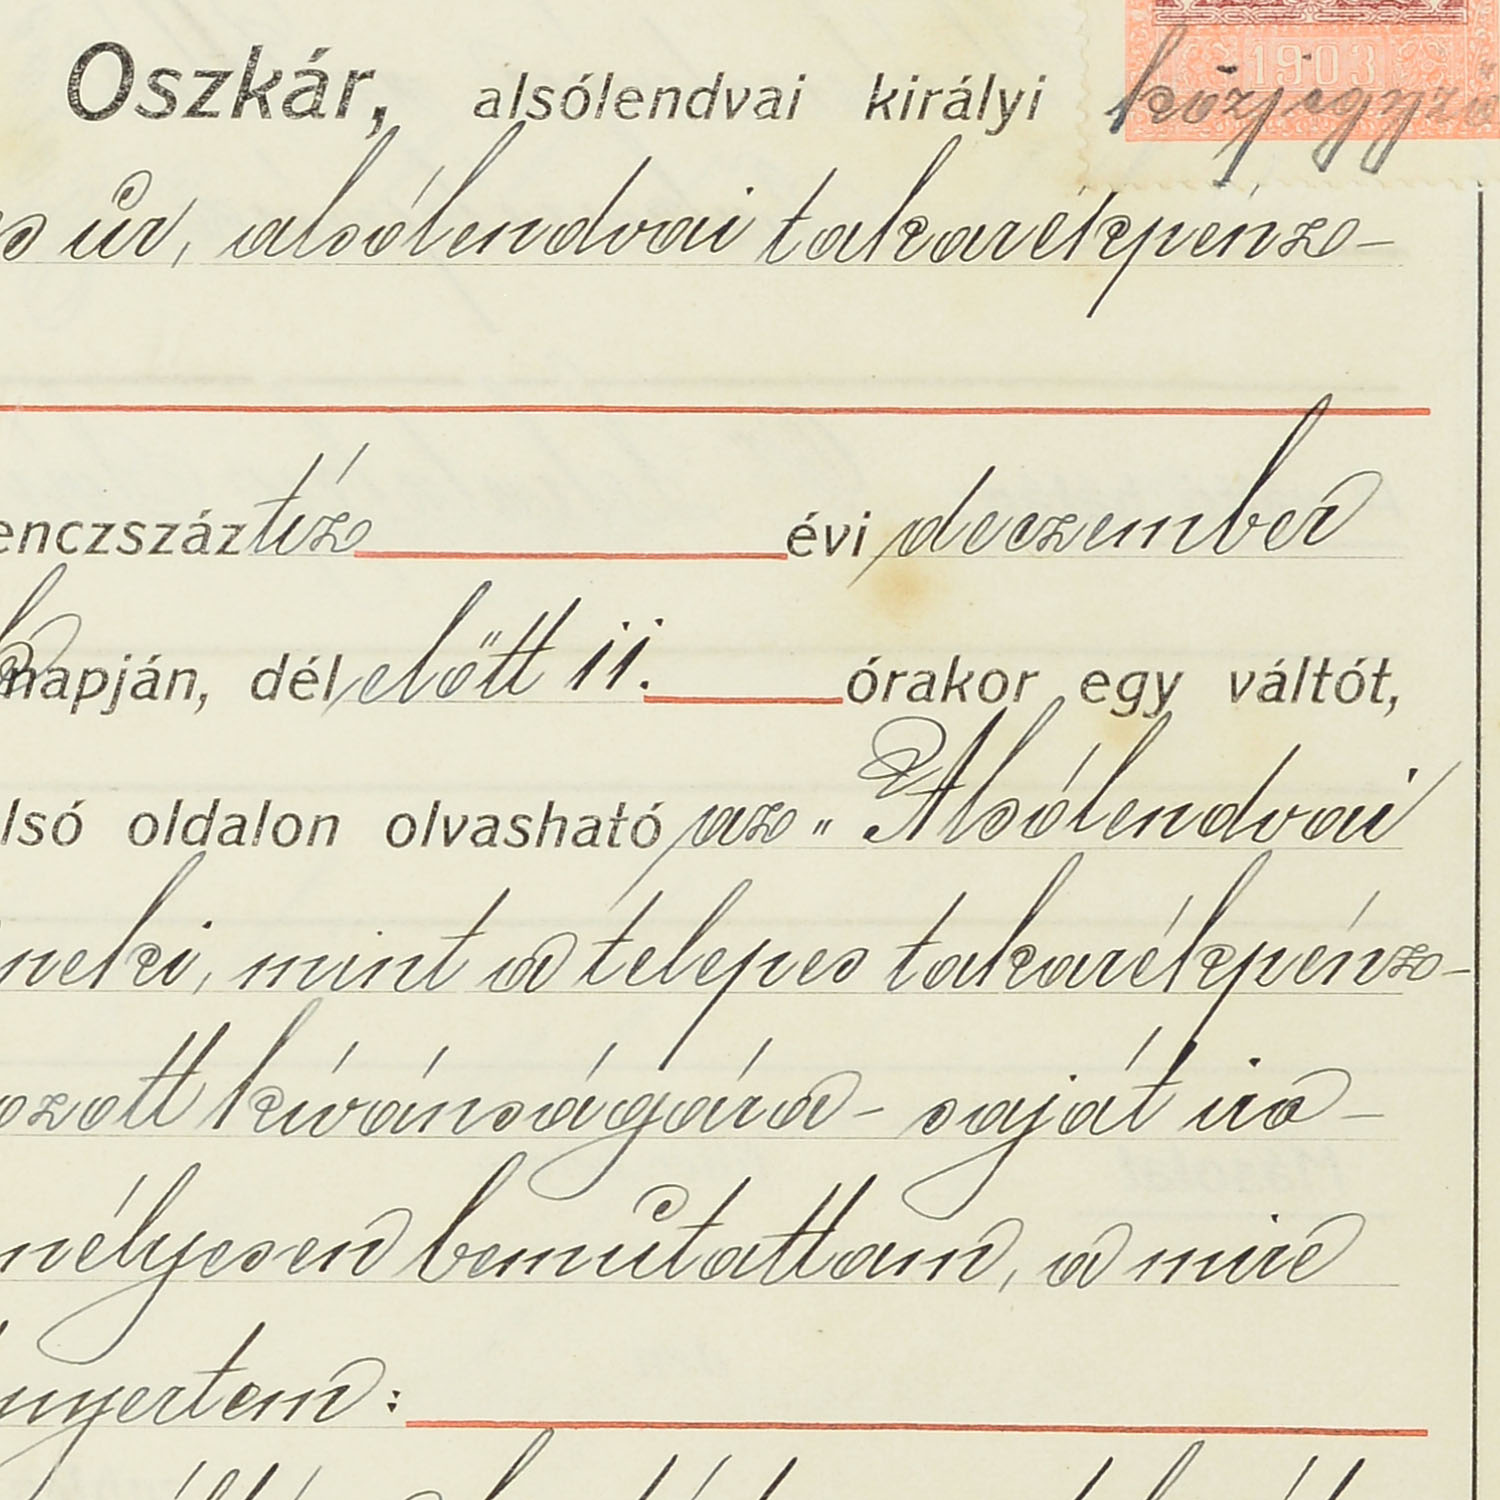 1903
Oszkár, alsólendvai királyi közjegyző
úr, alsólendvai takarékpénz-
enczszáz tíz évi deczember
napján, dél előtt 11. órakor egy váltót,
lsó oldalon olvasható az „Alsólendvai
neki, mint a telepes takarékpénz-
ozott kívánságára - saját iro-
mélyesen bemutattam, a mire
nyertem: